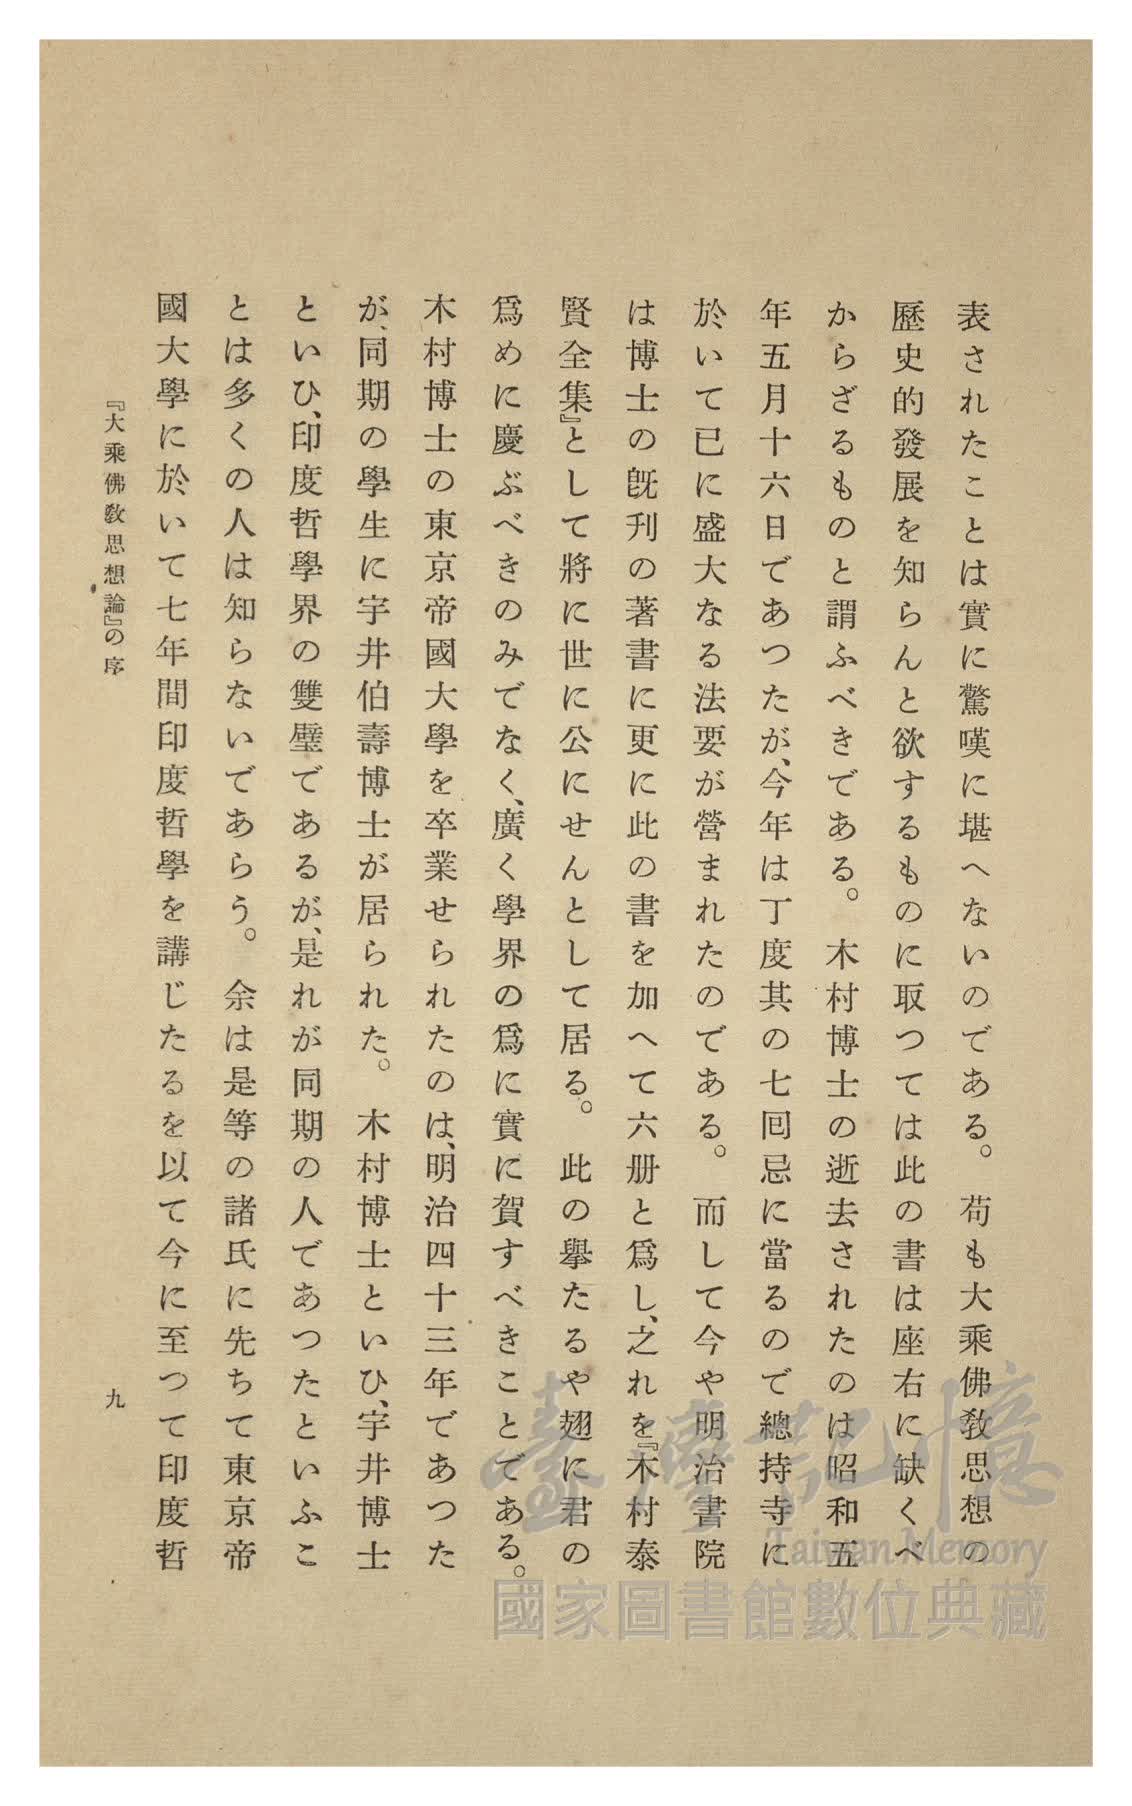 表されたことは實に驚嘆に堪へないのである。 苟も大乘佛敎思想の
歷史的發展を知らんと欲するものに取つては此の書は座右に缺くべ
からざるものと謂ふべきである。 木村博士の逝去されたのは昭和五
年五月十六日であつたが、今年は丁度其の七囘忌に當るので總持寺に
於いて已に盛大なる法要が營まれたのである。 而して今や明治書院
は博士の旣刊の著書に更に此の書を加へて六册と爲し、之れを『木村泰
賢全集』として將に世に公にせんとして居る。 此の擧たるや翅に君の
爲めに慶ぶべきのみでなく、廣く學界の爲に實に賀すべきことである。
木村博士の東京帝國大學を卒業せられたのは、明治四十三年であつた
が、同期の學生に宇井伯壽博士が居られた。 木村博士といひ、宇井博士
といひ、印度哲學界の雙璧であるが、是れが同期の人であつたといふこ
とは多くの人は知らないであらう。 余は是等の諸氏に先ちて東京帝
國大學に於いて七年間印度哲學を講じたるを以て今に至つて印度哲
『大乘佛敎思想論』の序
九
臺灣記憶
Taiwan Memory
國家圖書館數位典藏